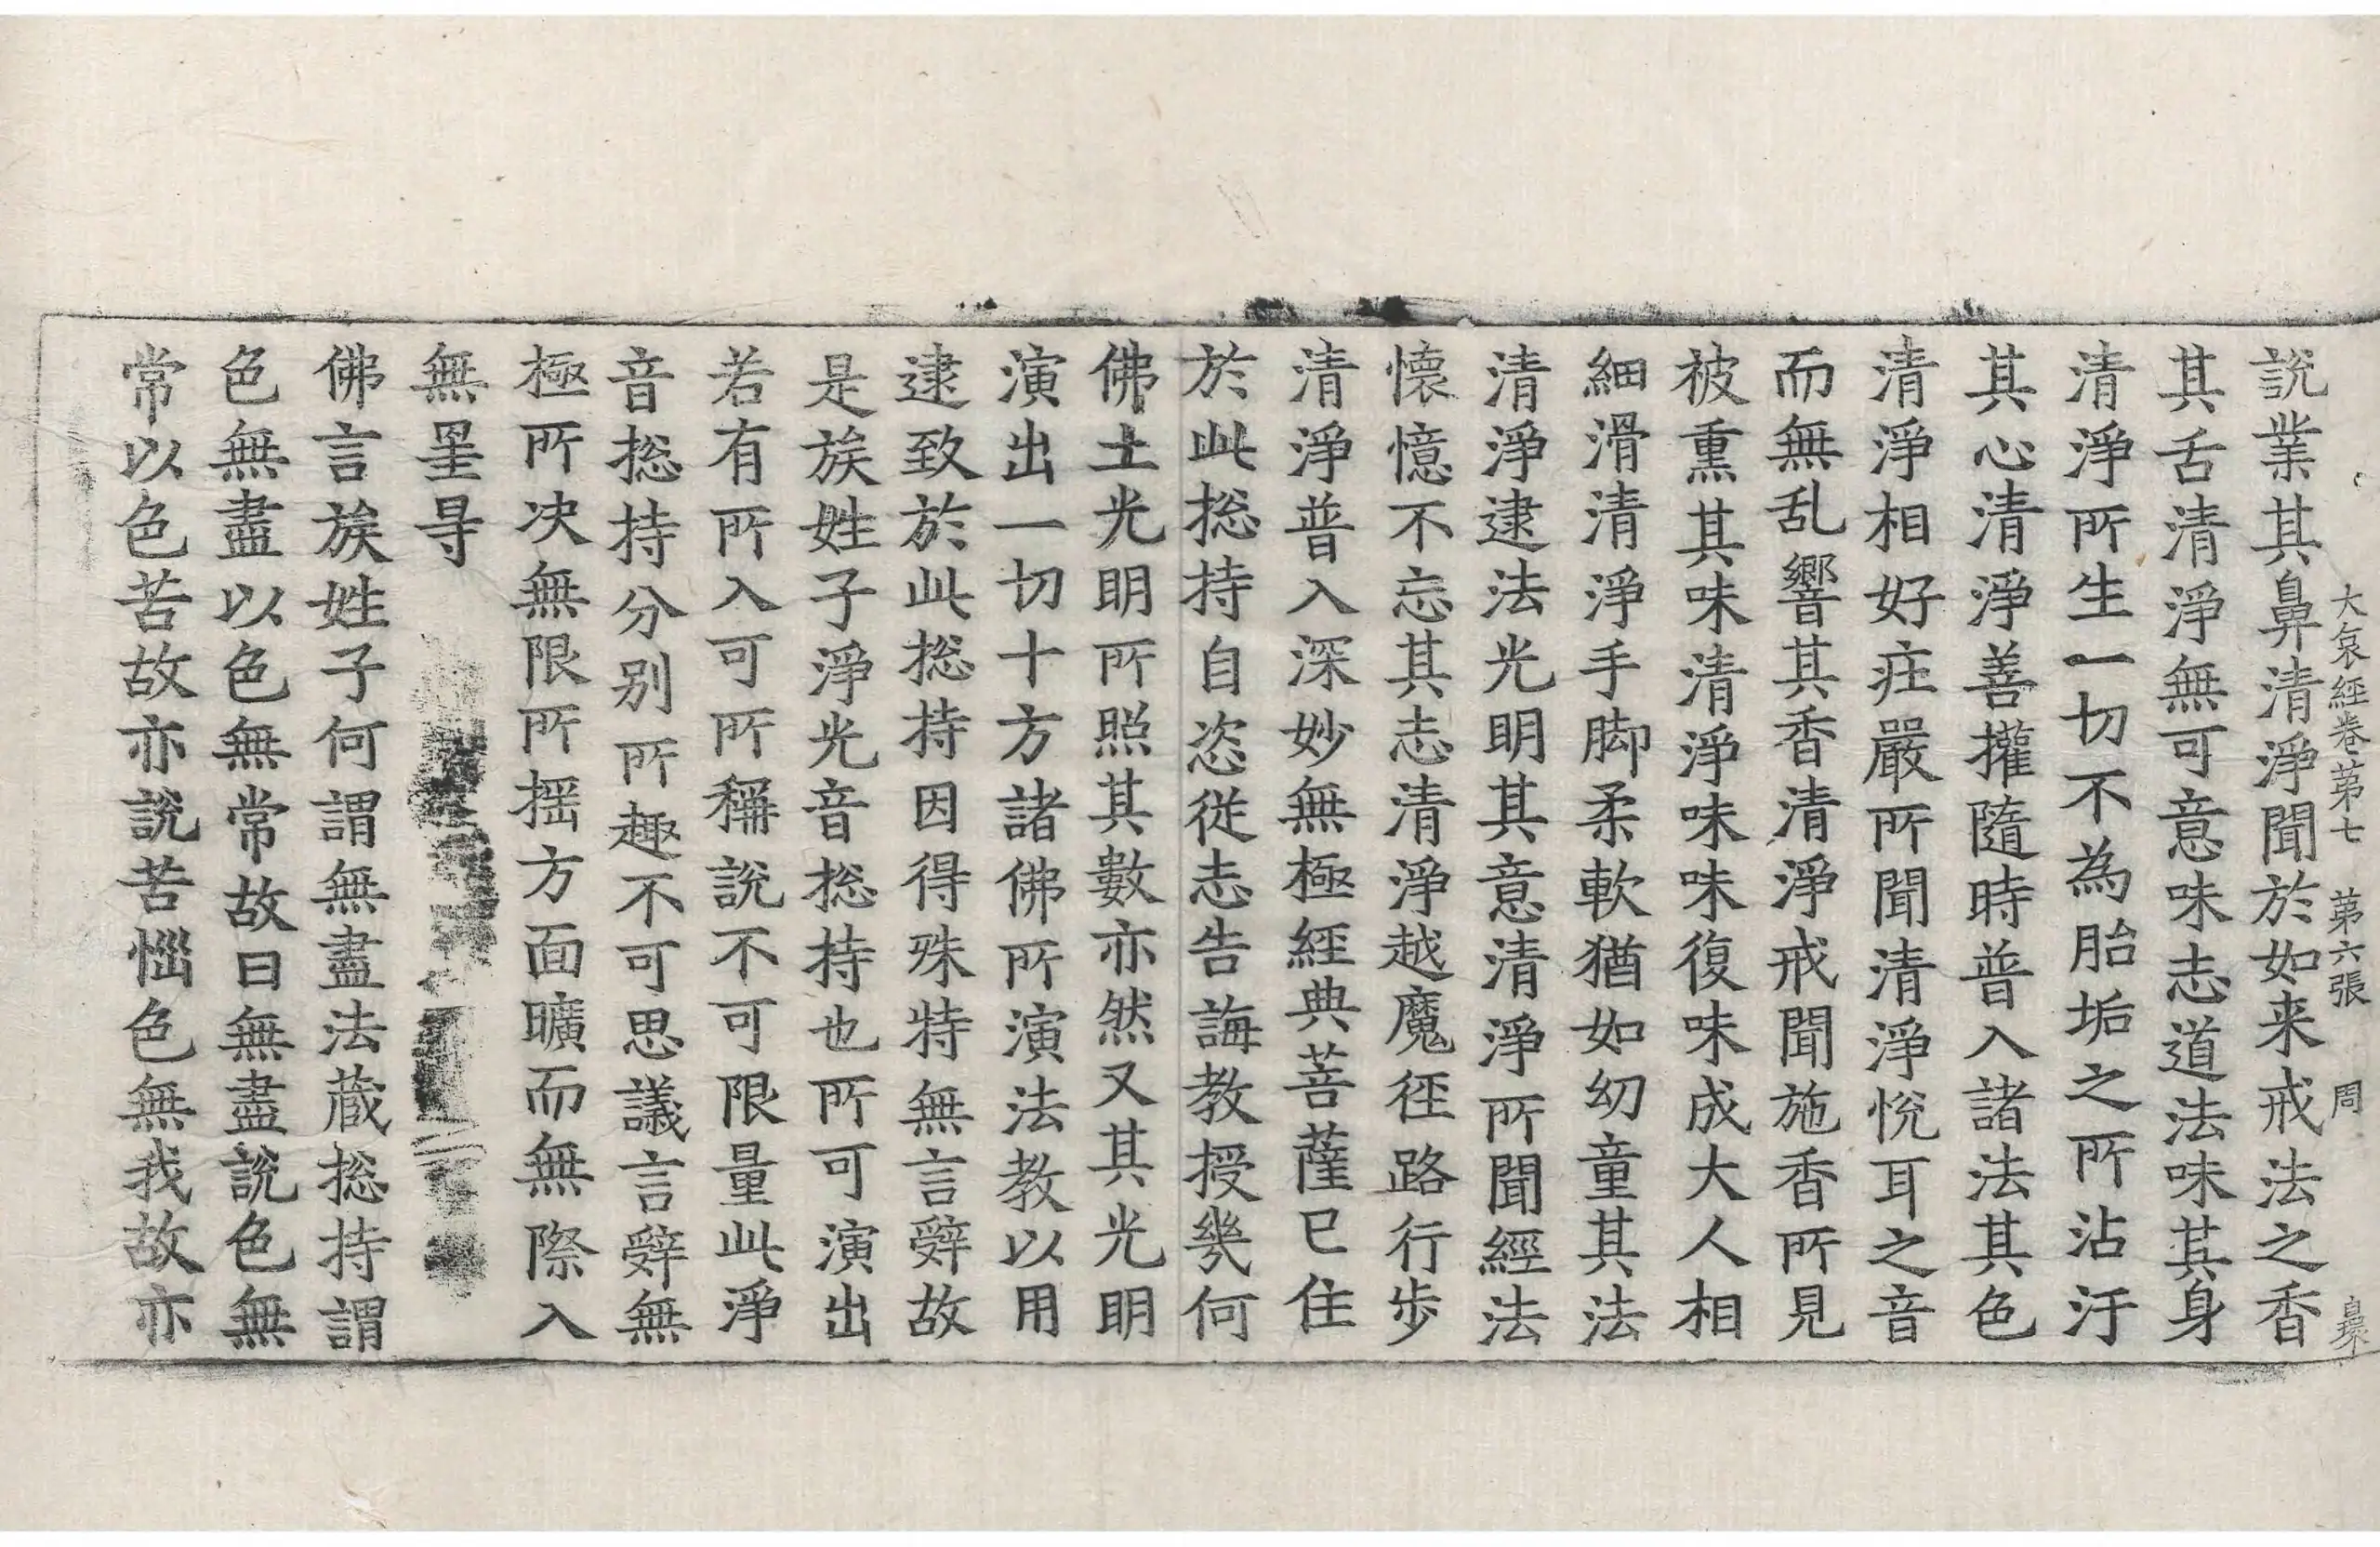 大哀經卷第七　第六張　周
說業其鼻清淨聞於如来戒法之香
其舌清淨無可意味志道法味其身
清淨所生一切不為胎垢之所沾汙
其心清淨善攉隨時普入諸法其色
清淨相好㽵嚴所聞清淨悅耳之音
而無乱響其香清淨戒聞施香所見
被熏其味清淨味味復味成大人相
細滑清淨手脚柔軟猶如幼童其法
清淨逮法光明其意清淨所聞經法
懷憶不忘其志清淨越魔徑路行步
清淨普入深妙無極經典菩薩已住
於此㧾持自恣從志告誨教授幾何
佛土光明所照其數亦然又其光明
演出一切十方諸佛所演法教以用
逮致於此㧾持因得殊特無言辤故
是族姓子淨光音㧾持也所可演出
若有所入可所稱說不可限量此淨
音㧾持分别所趣不可思議言辤無
極所决無限所揺方面曠而無際入
無罣㝵
佛言族姓子何謂無盡法蔵㧾持謂
色無盡以色無常故曰無盡說色無
常以色苦故亦說苦惱色無我故亦